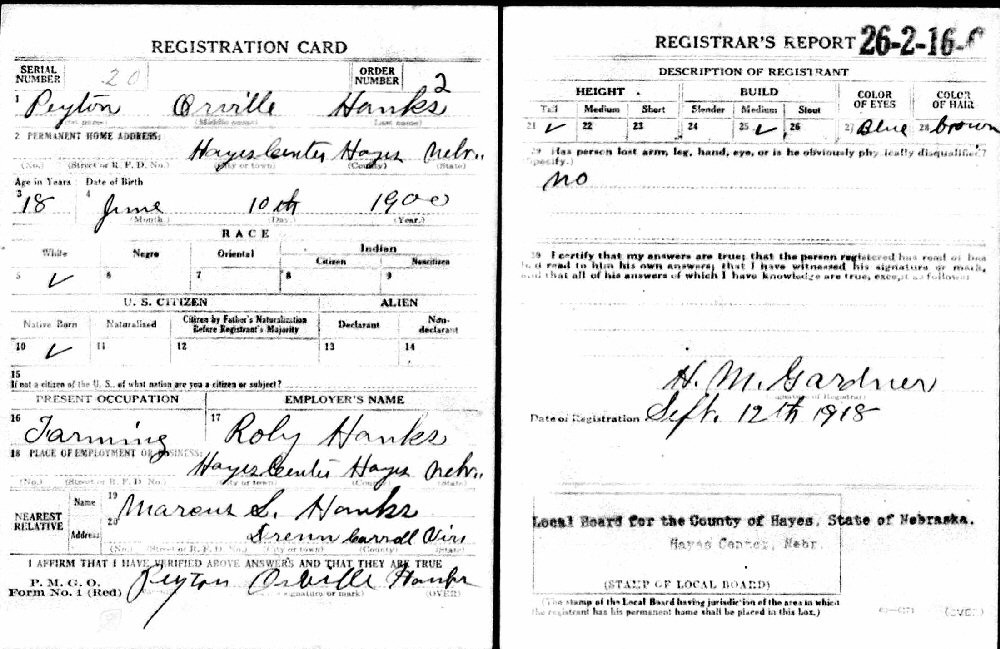 REGISTRATION CARD
SERIAL NUMBER 20 ORDER NUMBER 2
1 Peyton Orville Hanks
(Middle name) (Last name)
2 PERMANENT HOME ADDRESS:
Hayes Center Hayes Nebr.
(No.) (Street or R. F. D. No.) (City or town) (County) (State)
Age in Years Date of Birth
3 18 4 June 10th 1900
(Month.) (Day.) (Year.)
RACE
White Negro Oriental Indian
Citizen Noncitizen
5 ✓ 6 7 8 9
U. S. CITIZEN ALIEN
Native Born Naturalized Citizen by Father's Naturalization Before Registrant's Majority Declarant Non-declarant
10 ✓ 11 12 13 14
15
If not a citizen of the U. S., of what nation are you a citizen or subject?
PRESENT OCCUPATION EMPLOYER'S NAME
16 Farming 17 Roby Hanks
18 PLACE OF EMPLOYMENT OR BUSINESS:
Hayes Center Hayes Nebr.
(No.) (Street or R. F. D. No.) (City or town) (County) (State)
NEAREST RELATIVE Name 19 Marcus S. Hanks
Address 20 Carroll
(No.) (Street or R. F. D. No.) (City or town) (County) (State)
I AFFIRM THAT I HAVE VERIFIED ABOVE ANSWERS AND THAT THEY ARE TRUE
P. M. G. O.
Form No. 1 (Red) Peyton Orville Hanks
(Signature or mark) (OVER)
REGISTRAR'S REPORT 26-2-16-
DESCRIPTION OF REGISTRANT
HEIGHT BUILD COLOR OF EYES COLOR OF HAIR
Tall Medium Short Slender Medium Stout
21 ✓ 22 23 24 25 ✓ 26 27 Blue 28 brown
29 Has person lost arm, leg, hand, eye, or is he obviously physically disqualified?
(Specify.)
no
30 I certify that my answers are true; that the person registered has read or has
had read to him his own answers; that I have witnessed his signature or mark,
and that all of his answers of which I have knowledge are true, except as follows:
H. M. Gardner
(Signature of Registrar)
Date of Registration Sept. 12th 1918
Local Board for the County of Hayes, State of Nebraska.
Hayes Center, Nebr.
(STAMP OF LOCAL BOARD)
(The stamp of the Local Board having jurisdiction of the area in which
the registrant has his permanent home shall be placed in this box.)
(OVER)